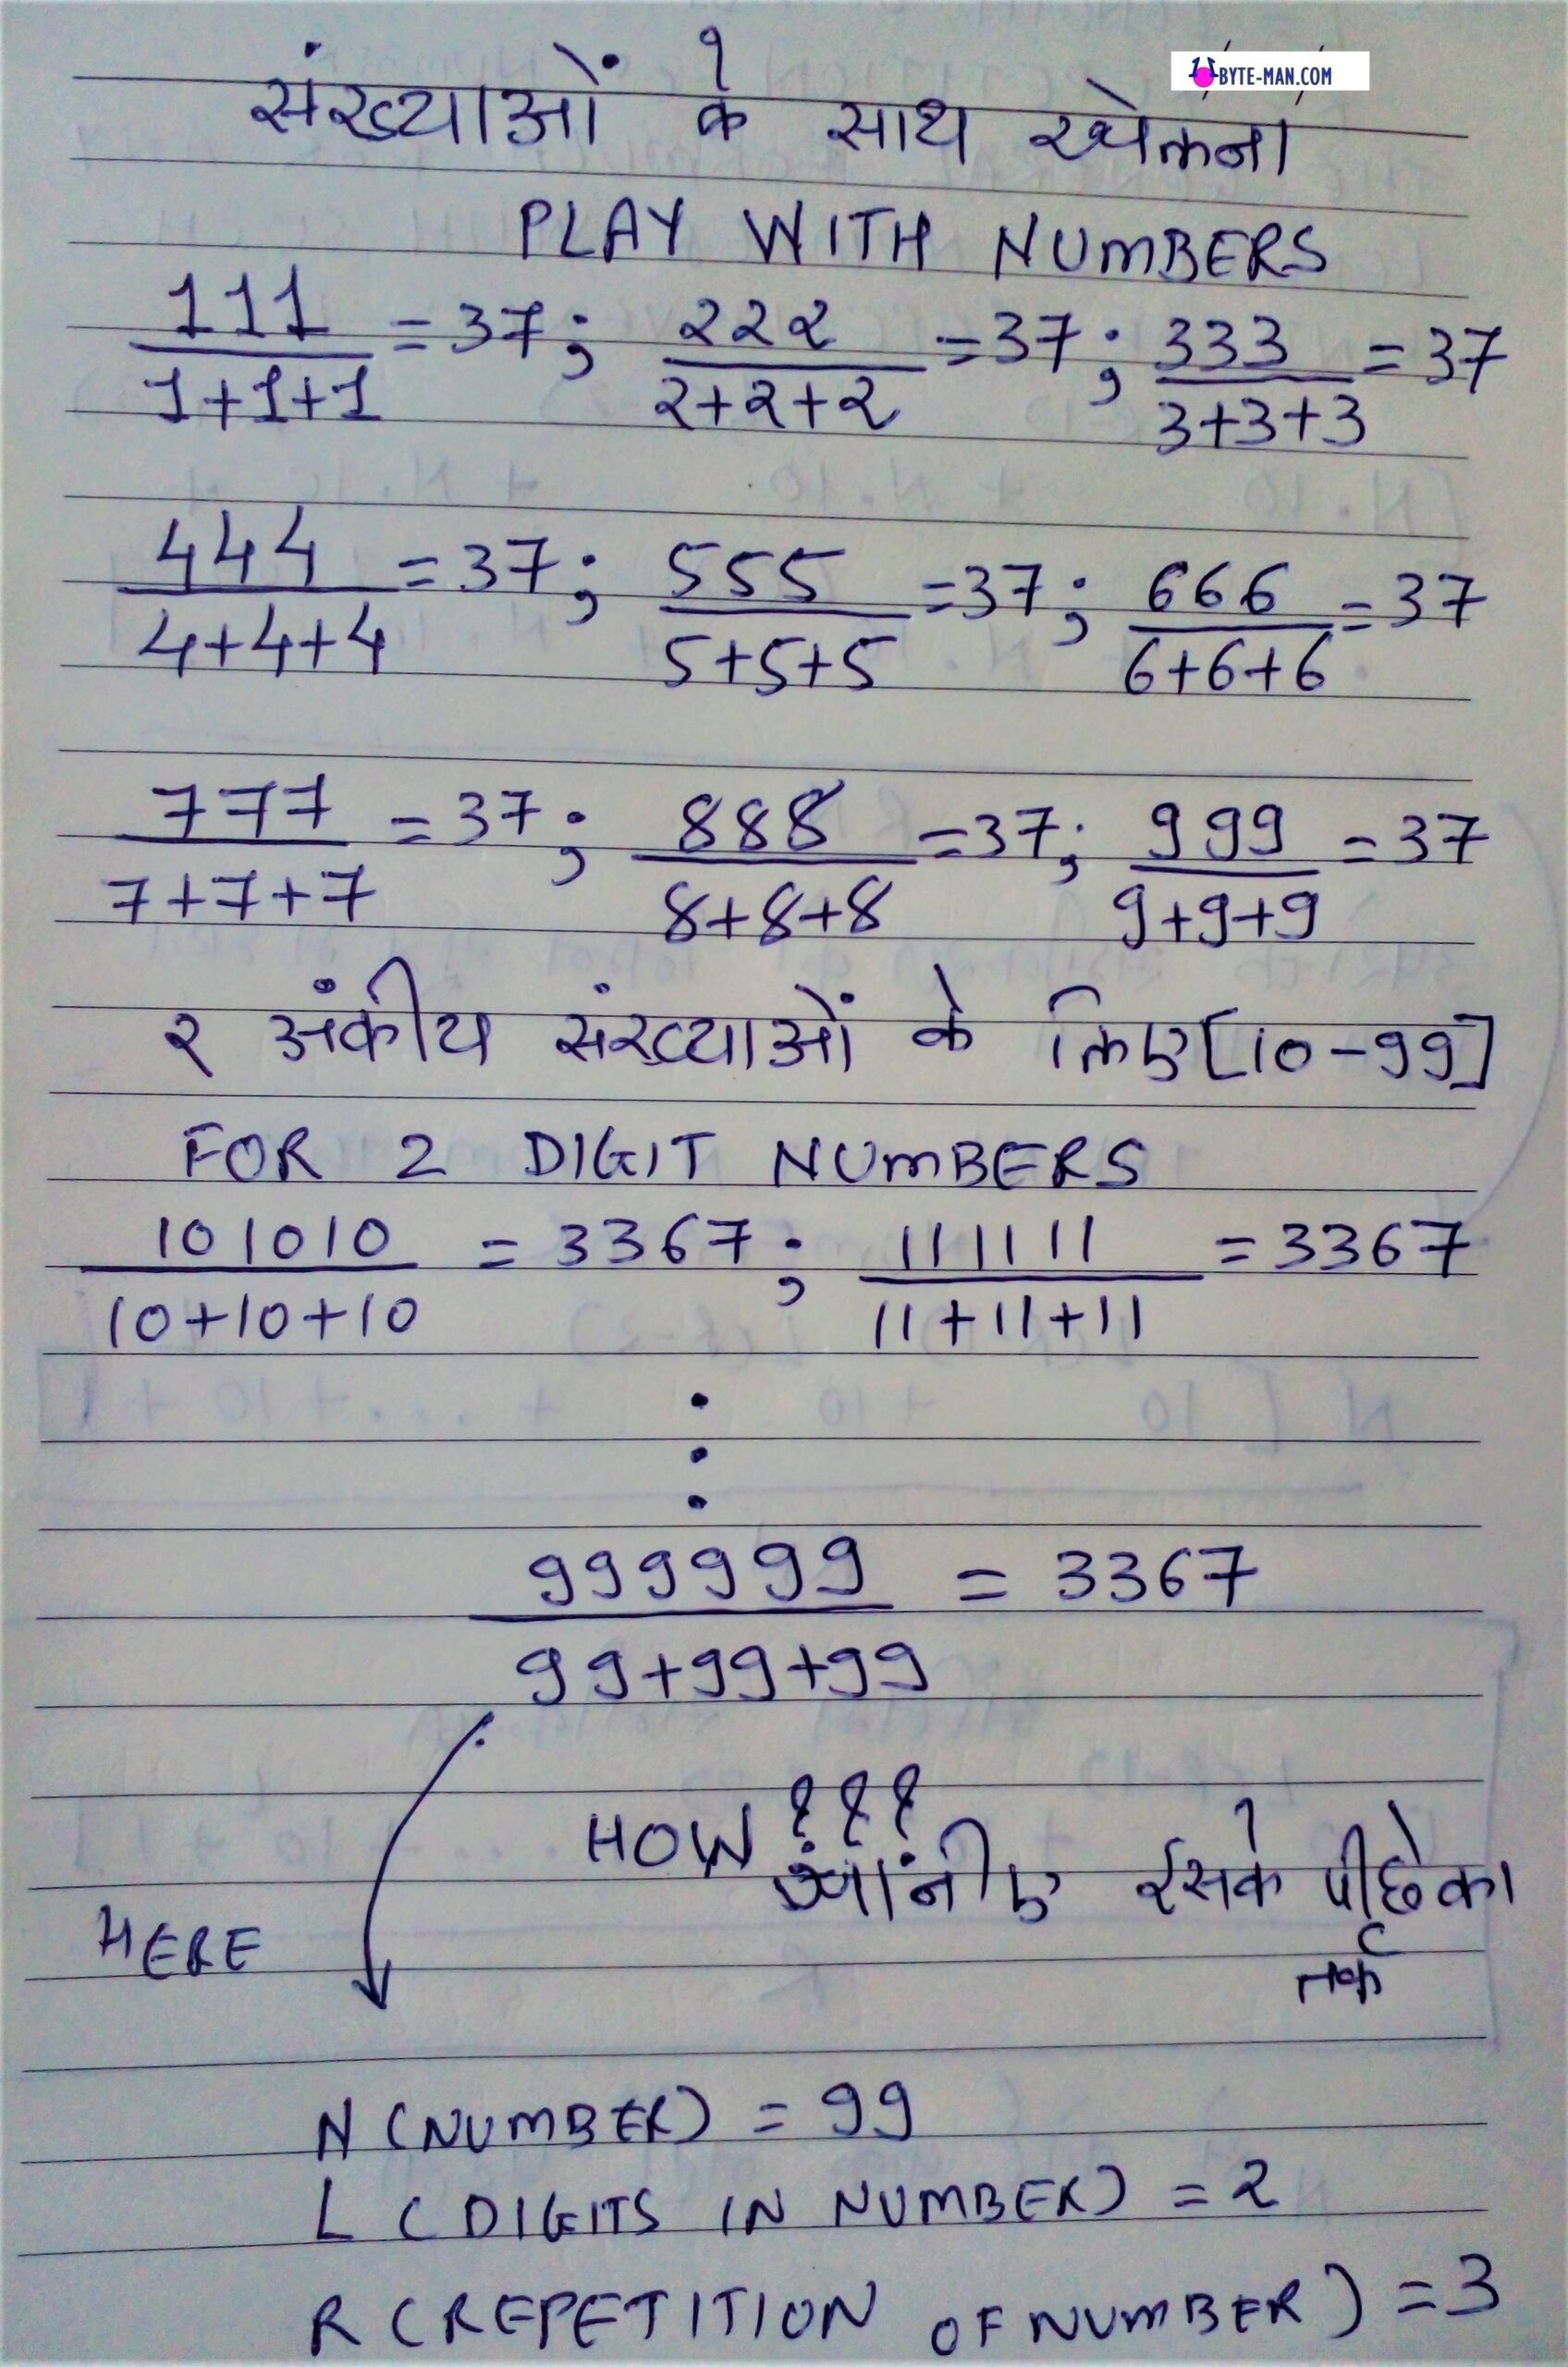 BYTE-MAN.COM
संख्याओं के साथ खेलना
PLAY WITH NUMBERS
111 / 1+1+1 = 37 ; 222 / 2+2+2 = 37 ; 333 / 3+3+3 = 37
444 / 4+4+4 = 37 ; 555 / 5+5+5 = 37 ; 666 / 6+6+6 = 37
777 / 7+7+7 = 37 ; 888 / 8+8+8 = 37 ; 999 / 9+9+9 = 37
२ अंकीय संख्याओं के लिए [10-99]
FOR 2 DIGIT NUMBERS
101010 / 10+10+10 = 3367 ; 111111 / 11+11+11 = 3367
999999 / 99+99+99 = 3367
HOW ???
जांनीए ईसके पीछे का
तर्क
HERE
N (NUMBER) = 99
L (DIGITS IN NUMBER) = 2
R (REPETITION OF NUMBER) = 3